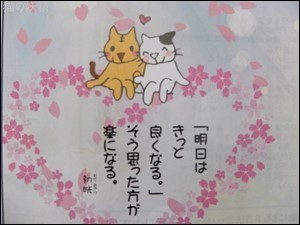 「明日は
きっと
良くなる。」
そう思った方が
楽になる。
初咲